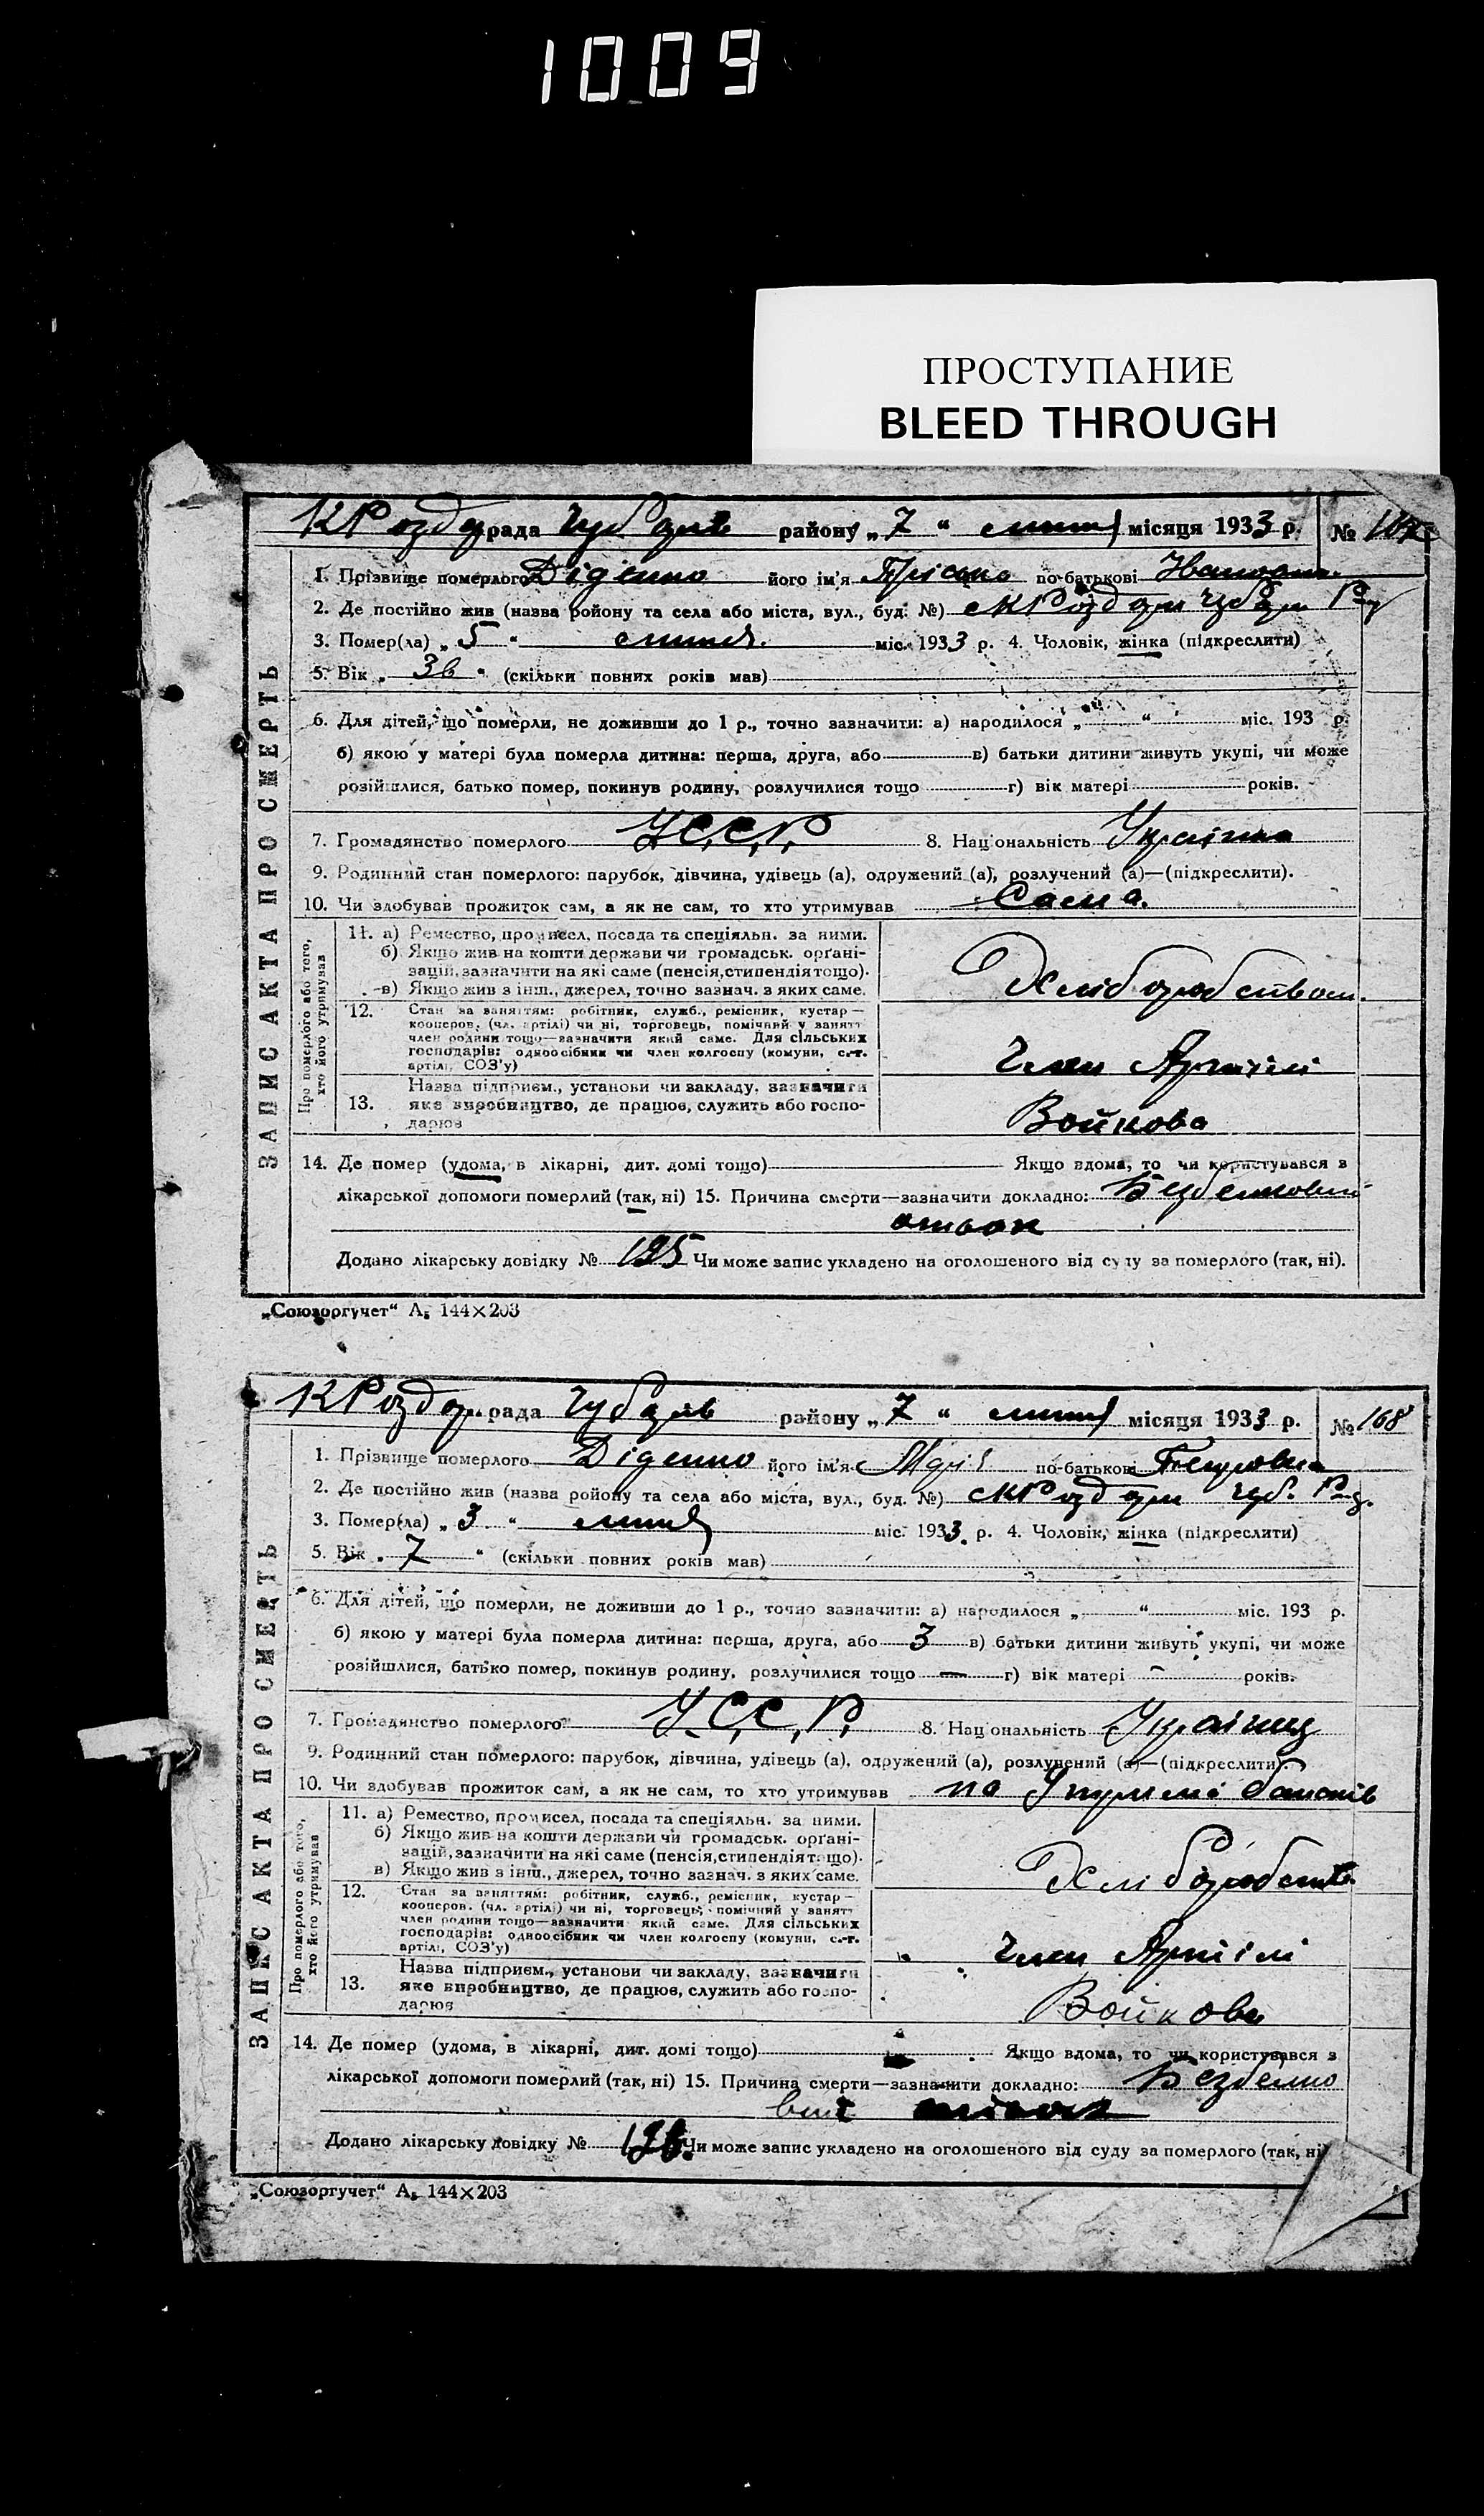 1009
ПРОСТУПАНИЕ
BLEED THROUGH
ЗАПИС АКТА ПРО СМЕРТЬ
рада району „7“ місяця 1933 р. №
1. Прізвище померлого Діденко його ім'я по-батькові
2. Де постійно жив (назва ройону та села або міста, вул., буд. №)
3. Помер(ла) „5“ липня міс. 1933 р. 4. Чоловік, жінка (підкреслити)
5. Вік „ “ (скільки повних років мав)
6. Для дітей, що померли, не доживши до 1 р., точно зазначити: а) народилося „ “ міс. 193 р.
б) якою у матері була померла дитина: перша, друга, або в) батьки дитини живуть укупі, чи може
розійшлися, батько помер, покинув родину, розлучилися тощо г) вік матері років.
7. Громадянство померлого У.С.С.Р. 8. Національність
9. Родинний стан померлого: парубок, дівчина, удівець (а), одружений (а), розлучений (а)—(підкреслити).
10. Чи здобував прожиток сам, а як не сам, то хто утримував Сама.
Про померлого або того, хто його утримував
11. а) Ремество, промисел, посада та спеціяльн. за ними.
б) Якщо жив на кошти держави чи громадськ. орґані-
зацій, зазначити на які саме (пенсія, стипендія тощо).
в) Якщо жив з інш., джерел, точно зазнач. з яких саме.
12. Стан за заняттям: робітник, служб., ремісник, кустар—
кооперов. (чл. артілі) чи ні, торговець, помічний у занятт
член родини тощо—зазначити який саме. Для сільських
господарів: одноосібник чи член колгоспу (комуни, с.-г.
артілі, СОЗ'у)
Член Артілі
13. Назва підприєм., установи чи закладу, зазначити
яке виробництво, де працює, служить або госпо-
дарює
Войкова
14. Де помер (удома, в лікарні, дит. домі тощо) Якщо вдома, то чи користувався з
лікарської допомоги померлий (так, ні) 15. Причина смерти—зазначити докладно: Безбелковий
отьок
Додано лікарську довідку № 195 Чи може запис укладено на оголошеного від суду за померлого (так, ні).
„Союзоргучет“ А₅ 144×203
ЗАПИС АКТА ПРО СМЕРТЬ
рада району „7“ місяця 1933 р. № 168
1. Прізвище померлого Діденко його ім'я Марія по-батькові Петровна
2. Де постійно жив (назва ройону та села або міста, вул., буд. №)
3. Помер(ла) „3“ липня міс. 1933 р. 4. Чоловік, жінка (підкреслити)
5. Вік „7“ (скільки повних років мав)
6. Для дітей, що померли, не доживши до 1 р., точно зазначити: а) народилося „ “ міс. 193 р.
б) якою у матері була померла дитина: перша, друга, або 3 в) батьки дитини живуть укупі, чи може
розійшлися, батько помер, покинув родину, розлучилися тощо — г) вік матері - років.
7. Громадянство померлого У.С.С.Р. 8. Національність
9. Родинний стан померлого: парубок, дівчина, удівець (а), одружений (а), розлучений (а)—(підкреслити).
10. Чи здобував прожиток сам, а як не сам, то хто утримував на батьків
Про померлого або того, хто його утримував
11. а) Ремество, промисел, посада та спеціяльн. за ними.
б) Якщо жив на кошти держави чи громадськ. орґані-
зацій, зазначити на які саме (пенсія, стипендія тощо).
в) Якщо жив з інш., джерел, точно зазнач. з яких саме.
12. Стан за заняттям: робітник, служб., ремісник, кустар—
кооперов. (чл. артілі) чи ні, торговець, помічний у занятт
член родини тощо—зазначити який саме. Для сільських
господарів: одноосібник чи член колгоспу (комуни, с.-г.
артілі, СОЗ'у)
Член Артілі
13. Назва підприєм., установи чи закладу, зазначити
яке виробництво, де працює, служить або госпо-
дарює
Войкова
14. Де помер (удома, в лікарні, дит. домі тощо) Якщо вдома, то чи користувався з
лікарської допомоги померлий (так, ні) 15. Причина смерти—зазначити докладно:
Додано лікарську довідку № Чи може запис укладено на оголошеного від суду за померлого (так, ні
„Союзоргучет“ А₅ 144×203